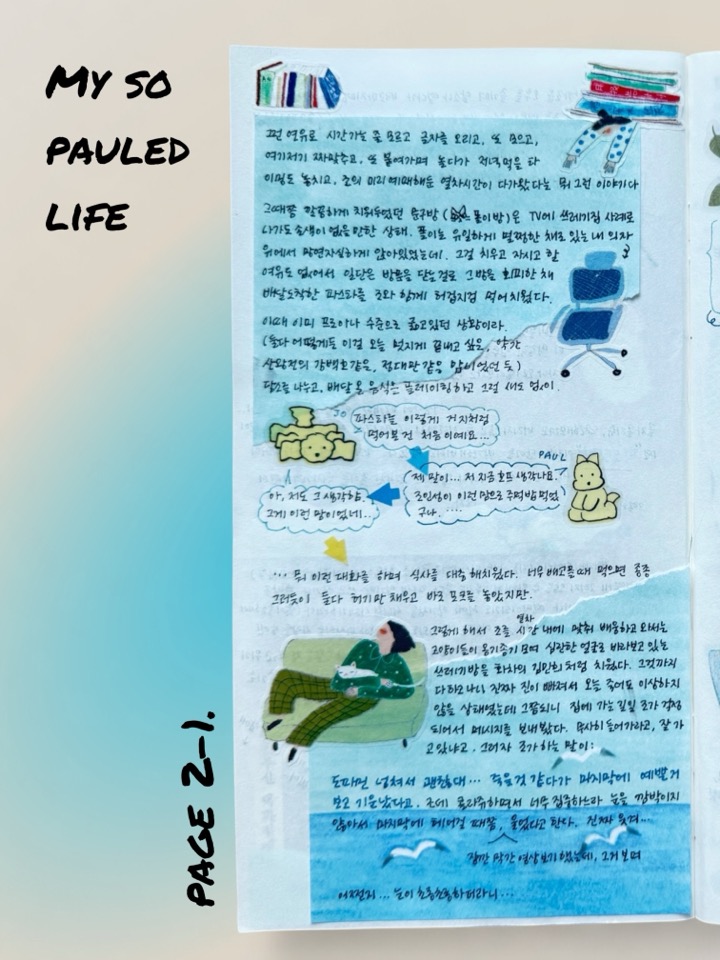 MY SO
PAULED
LIFE
그런 연유로 시간가는 줄 모르고 글자를 오리고, 또 모으고,
여기저기 짜맞추고, 또 붙여가며 놀다가 저녁먹을 타
이밍도 놓치고, 조의 미리 예매해둔 열차시간이 다가왔다는 뭐 그런 이야기다
그때쯤 깔끔하게 치워두었던 문구방( 폴이방)은 TV에 쓰레기집 사례로
나가도 손색이 없을만한 상태. 폴이는 유일하게 멀쩡한 채로 있는 내 의자
위에서 망연자실하게 앉아있었는데. 그걸 치우고 자시고 할
여유도 없어서 일단은 방문을 닫는걸로 그 방을 회피한 채
배달도착한 파스타를 조와 함께 허겁지겁 먹어치웠다.
이때 이미 프로아나 수준으로 굶고있던 상황이라.
(둘다 어떻게든 이걸 오늘 멋지게 끝내고 싶은, 약간
산왕전의 강백호같은, 정대만같은 맘이었던 듯)
담소를 나누고, 배달 온 음식은 플레이팅하고 그럴 새도 없이.
JO
파스타를 이렇게 거지처럼
먹어본건 처음이에요...
PAUL
제 말이... 저 지금 호프 생각나요.
조인성이 이런 맘으로 주먹밥 먹었
구나. ....
아, 저도 그 생각함.
그게 이런 맘이었네..
... 뭐 이런 대화를 하며 식사를 대충 해치웠다. 너무 배고플때 먹으면 종종
그러듯이 둘다 허기만 채우고 바로 포크를 놓았지만.
열차
그렇게 해서 조를 시간 내에 맞춰 배웅하고 와서는
고양이들이 옹기종기 모여 심란한 얼굴로 바라보고 있는
쓰레기방을 화차의 김민희처럼 치웠다. 그것까지
다하고나니 진짜 진이 빠져서 오늘 죽어도 이상하지
않을 상태였는데 그쯤되니 집에 가는길인 조가 걱정
되어서 메시지를 보내봤다. 무사히 들어가라고, 잘 가
고 있냐고. 그러자 조가 하는 말이:
도파민 넘쳐서 괜찮대... 죽을것 같다가 마지막에 예쁜거
보고 기운났다고. 근데 콜라쥬하면서 너무 집중하느라 눈을 깜박이지
않아서 마지막에 헤어질 때쯤, 울었다고 한다. 진짜 웃겨...
잠깐 막간 영상보기 했는데, 그거 보며
어쩐지... 눈이 초롱초롱하더라니...
PAGE 2-1.